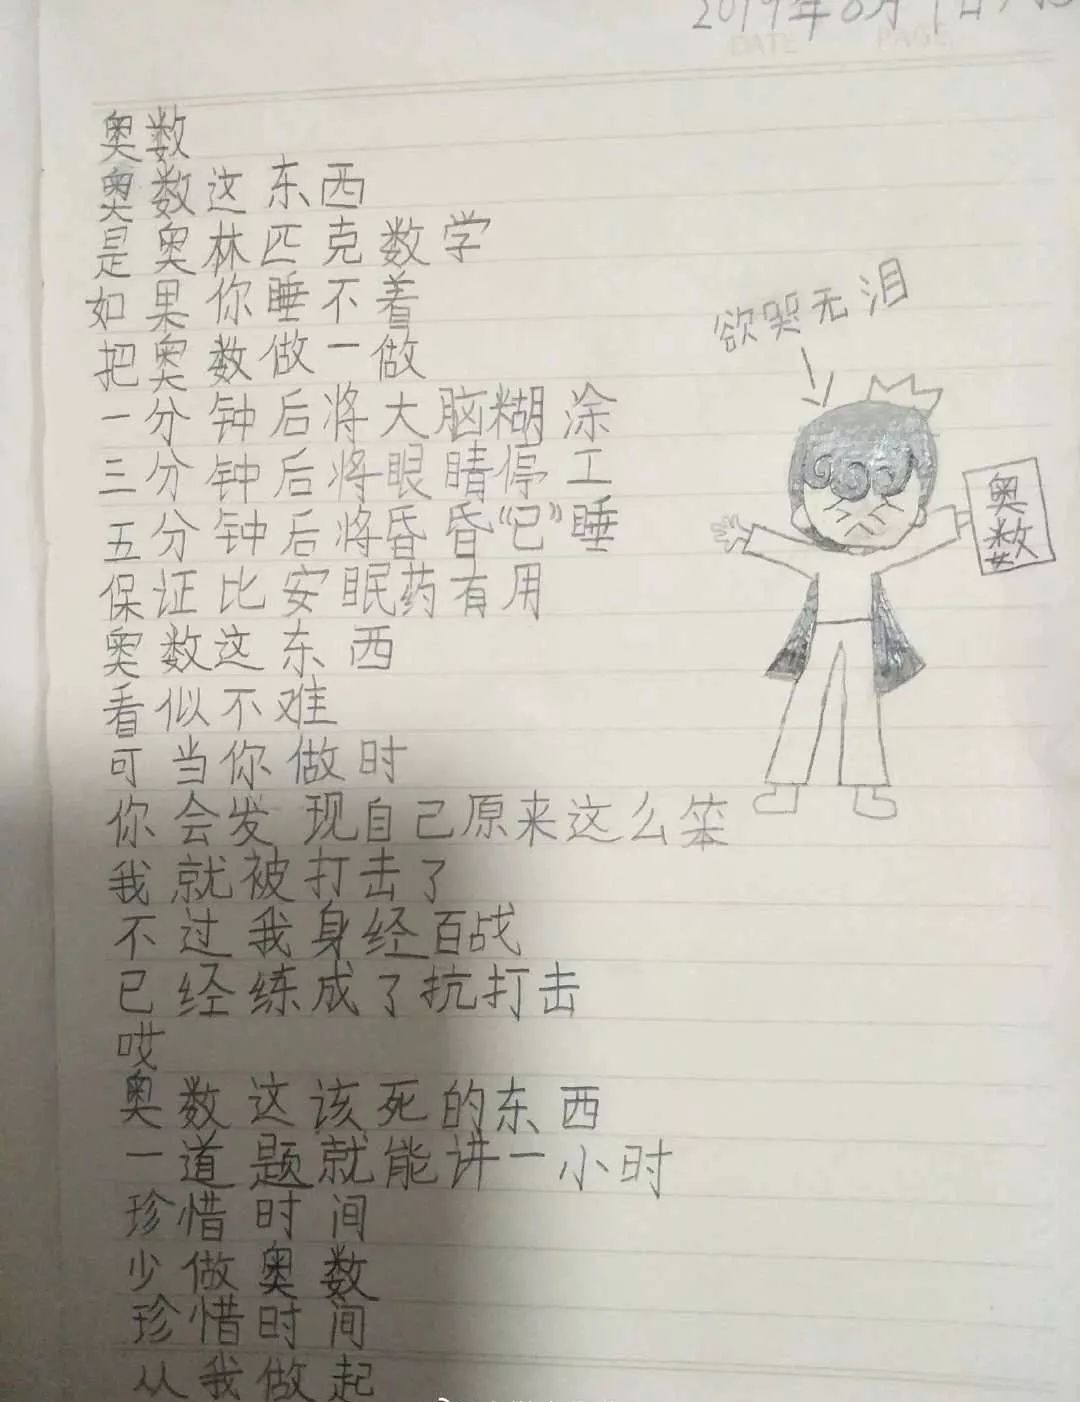 2019年6月1日
DATE PAGE
奥数
奥数这东西
是奥林匹克数学
如果你睡不着
把奥数做一做
一分钟后将大脑糊涂
三分钟后将眼睛停工
五分钟后将昏昏“已”睡
保证比安眠药有用
奥数这东西
看似不难
可当你做时
你会发现自己原来这么笨
我就被打击了
不过我身经百战
已经练成了抗打击
哎
奥数这该死的东西
一道题就能讲一小时
珍惜时间
少做奥数
珍惜时间
从我做起
欲哭无泪
奥数